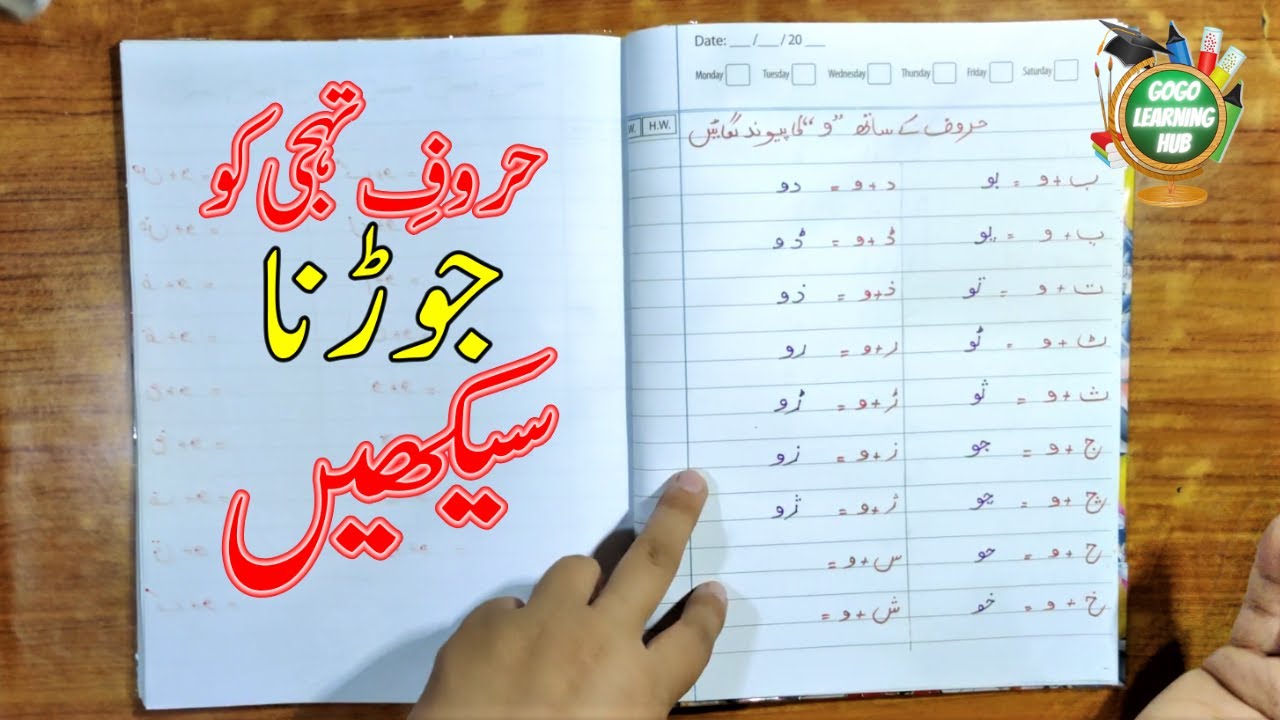 حروفِ تہجی کو
جوڑنا
سیکھیں
Date: __/__/20__
Monday Tuesday Wednesday Thursday Friday Saturday
W. H.W.
حروف کے ساتھ "و" کا پیوند لگائیں
ب + و = بو
د + و = دو
پ + و = پو
ڈ + و = ڈو
ت + و = تو
ذ + و = ذو
ٹ + و = ٹو
ر + و = رو
ث + و = ثو
ڑ + و = ڑو
ج + و = جو
ز + و = زو
چ + و = چو
ژ + و = ژو
ح + و = حو
س + و =
خ + و = خو
ش + و =
GOGO
LEARNING
HUB